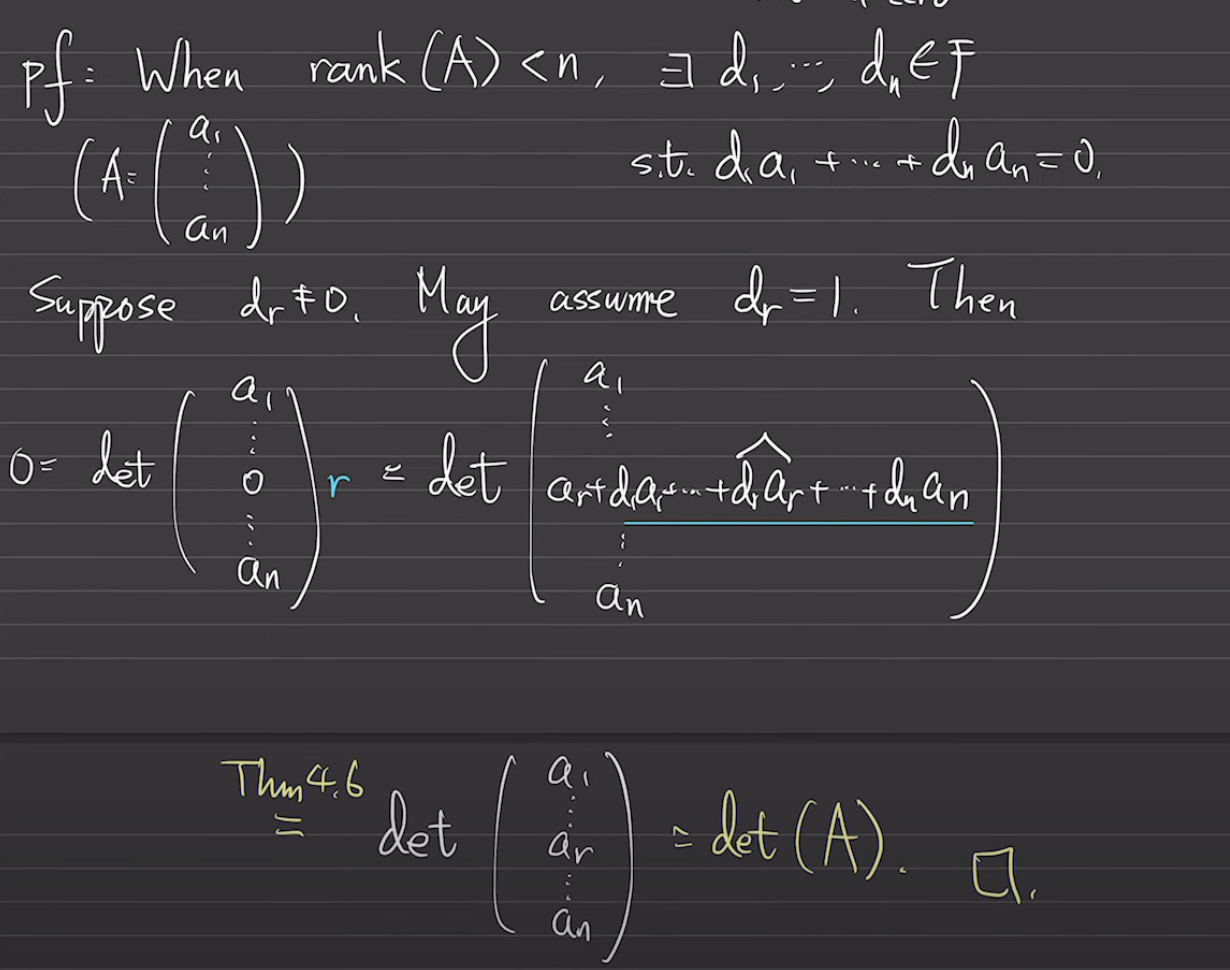 pf: When rank(A)<n, ∃ d₁,…, dₙ∈F
(A=(a₁ ⋮ aₙ)) s.t. d₁a₁+⋯+dₙaₙ=0.
Suppose dᵣ≠0. May assume dᵣ=1. Then
0= det(a₁ ⋮ 0 ⋮ aₙ) r = det(a₁ ⋮ aᵣ+d₁a₁+⋯+\widehat{dᵣaᵣ}+⋯+dₙaₙ ⋮ aₙ)
Thm 4.6
= det(a₁ ⋮ aᵣ ⋮ aₙ) = det(A). □.